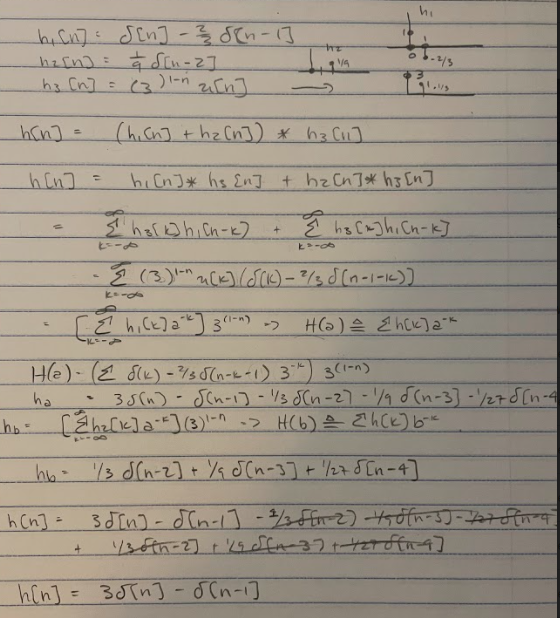 h₁[n] = δ[n] - 2/3 δ[n-1]
h₂[n] = 1/9 δ[n-2]
h₃[n] = (3)^(1-n) u[n] →
h₁
1
0
1
-2/3
h₂
1/9
3
1
1/3
h[n] = (h₁[n] + h₂[n]) * h₃[n]
h[n] = h₁[n] * h₃[n] + h₂[n] * h₃[n]
= ∑_(k=-∞)^∞ h₃[k] h₁[n-k] + ∑_(k=-∞)^∞ h₃[k] h₁[n-k]
= ∑_(k=-∞)^∞ (3)^(1-n) u[k] (δ[k] - 2/3 δ[n-1-k])]
= [∑_(k=-∞)^∞ h₁[k] a^(-k)] 3^(1-n) -> H(a) ≜ ∑h[k] a^(-k)
H(a) = (∑ δ(k) - 2/3 δ(n-k-1) 3^(-k)) 3^(1-n)
hₐ = 3δ[n] - δ[n-1] - 1/3 δ[n-2] - 1/9 δ[n-3] - 1/27 δ[n-4
h_b = [∑_(k=-∞)^∞ h₂[k] a^(-k)] (3)^(1-n) -> H(b) ≜ ∑h[k] b^(-k)
h_b = 1/3 δ[n-2] + 1/9 δ[n-3] + 1/27 δ[n-4]
h[n] = 3δ[n] - δ[n-1] - 1/3 δ[n-2] - 1/9 δ[n-3] - 1/27 δ[n-4
+ 1/3 δ[n-2] + 1/9 δ[n-3] + 1/27 δ[n-4]
h[n] = 3δ[n] - δ[n-1]